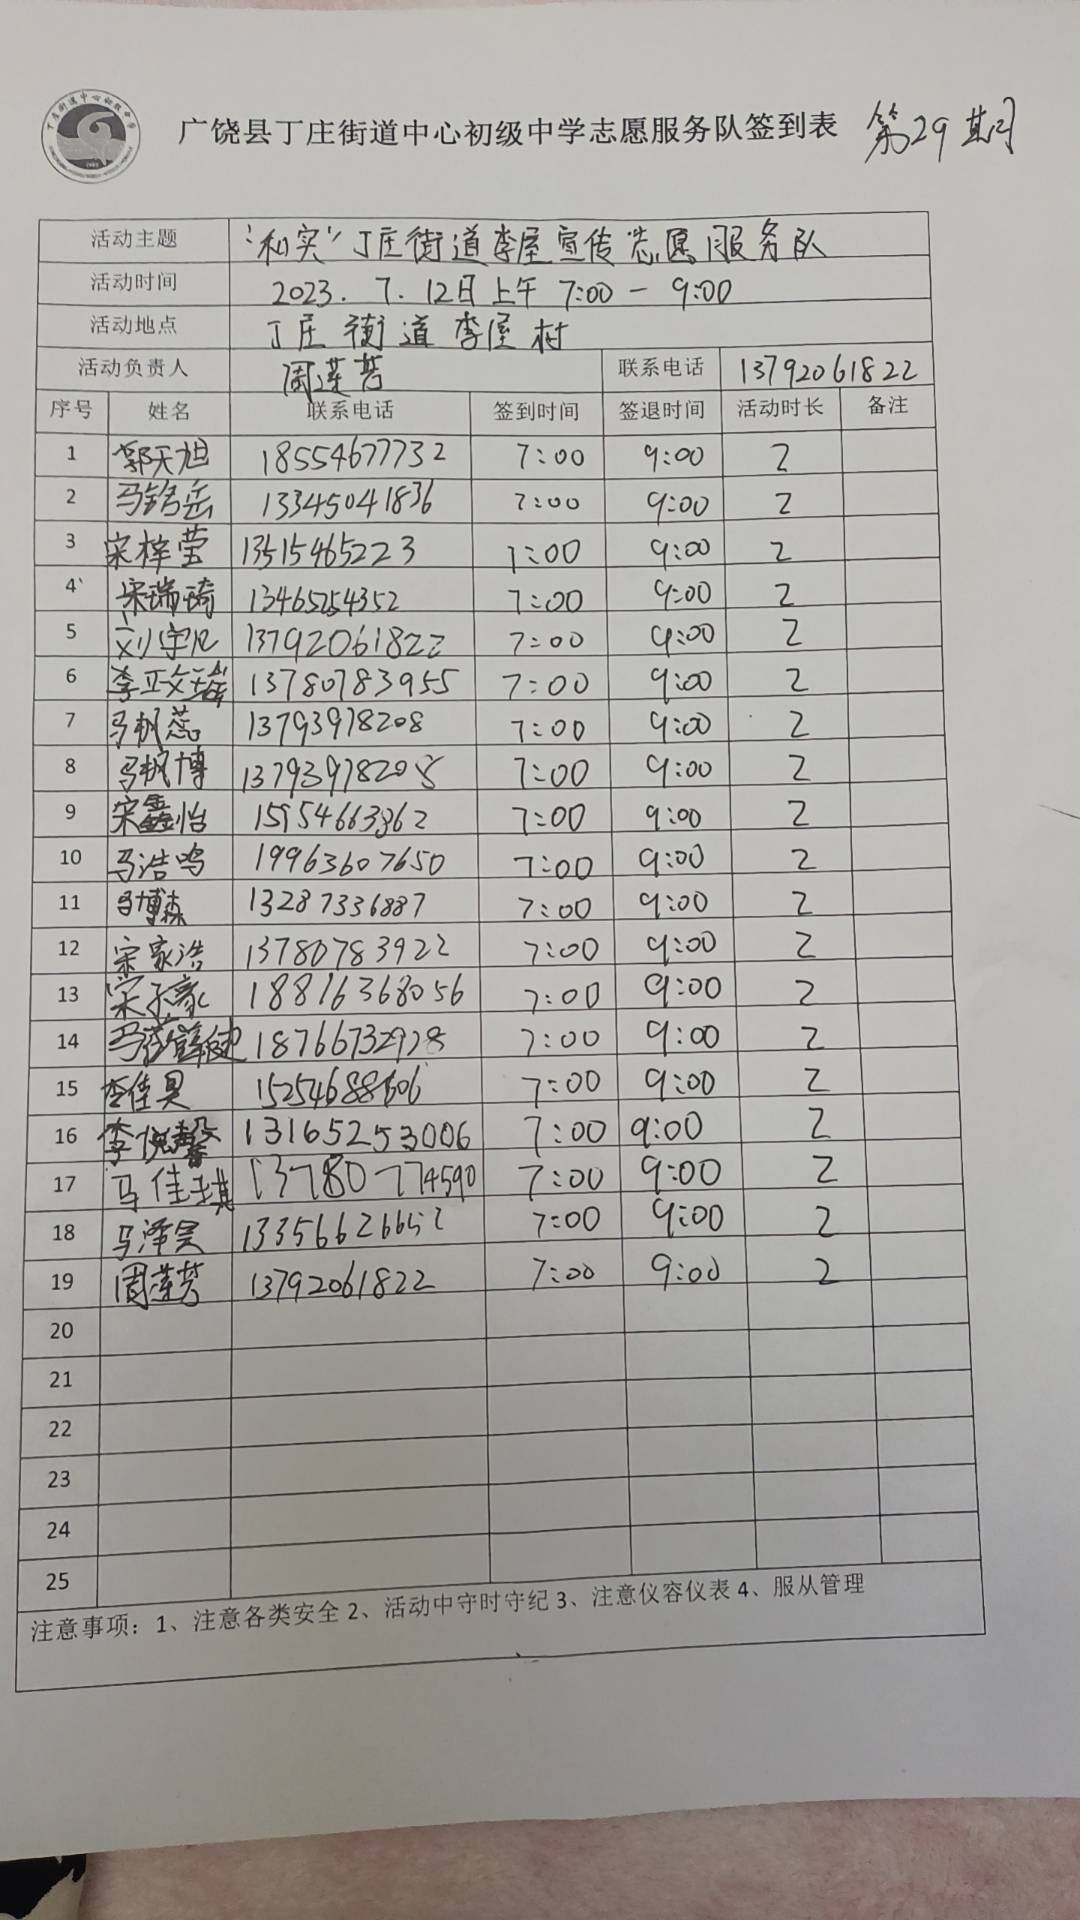 广饶县丁庄街道中心初级中学志愿服务队签到表 第29期
活动主题 “和实”丁庄街道李屋宣传志愿服务队
活动时间 2023.7.12日上午 7:00-9:00
活动地点 丁庄街道李屋村
活动负责人 周莲芳 联系电话 13792061822
序号 姓名 联系电话 签到时间 签退时间 活动时长 备注
1 郭天旭 18554677732 7:00 9:00 2
2 马铭岳 13345041836 7:00 9:00 2
3 宋梓莹 13515465223 7:00 9:00 2
4 宋瑞琦 13465254352 7:00 9:00 2
5 刘宇凡 13792061822 7:00 9:00 2
6 李政 13780783955 7:00 9:00 2
7 马帆蕊 13793978208 7:00 9:00 2
8 马帆博 13793978208 7:00 9:00 2
9 宋鑫怡 15954663362 7:00 9:00 2
10 马浩鸣 19963607650 7:00 9:00 2
11 马博森 13287336887 7:00 9:00 2
12 宋家浩 13780783922 7:00 9:00 2
13 宋子豪 18816368056 7:00 9:00 2
14 马 18766732928 7:00 9:00 2
15 李佳昊 15254688606 7:00 9:00 2
16 李悦馨 13165253006 7:00 9:00 2
17 马佳琪 13780774590 7:00 9:00 2
18 马泽昊 13356626652 7:00 9:00 2
19 周莲芳 13792061822 7:00 9:00 2
20
21
22
23
24
25
注意事项：1、注意各类安全 2、活动中守时守纪 3、注意仪容仪表 4、服从管理